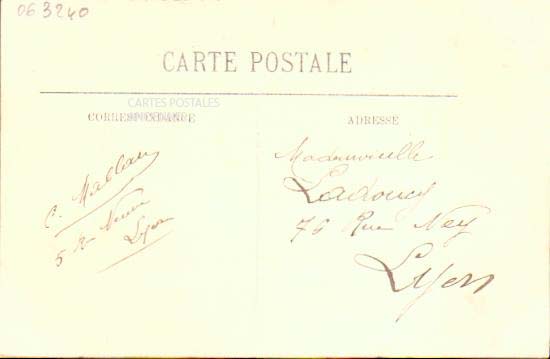 063240
CARTE POSTALE
CARTES POSTALES
CORRESPONDANCE
ADRESSE
C.
5 Rue Neuve
Lyon
Mademoiselle
Ladoucy
76 Rue Ney
Lyon